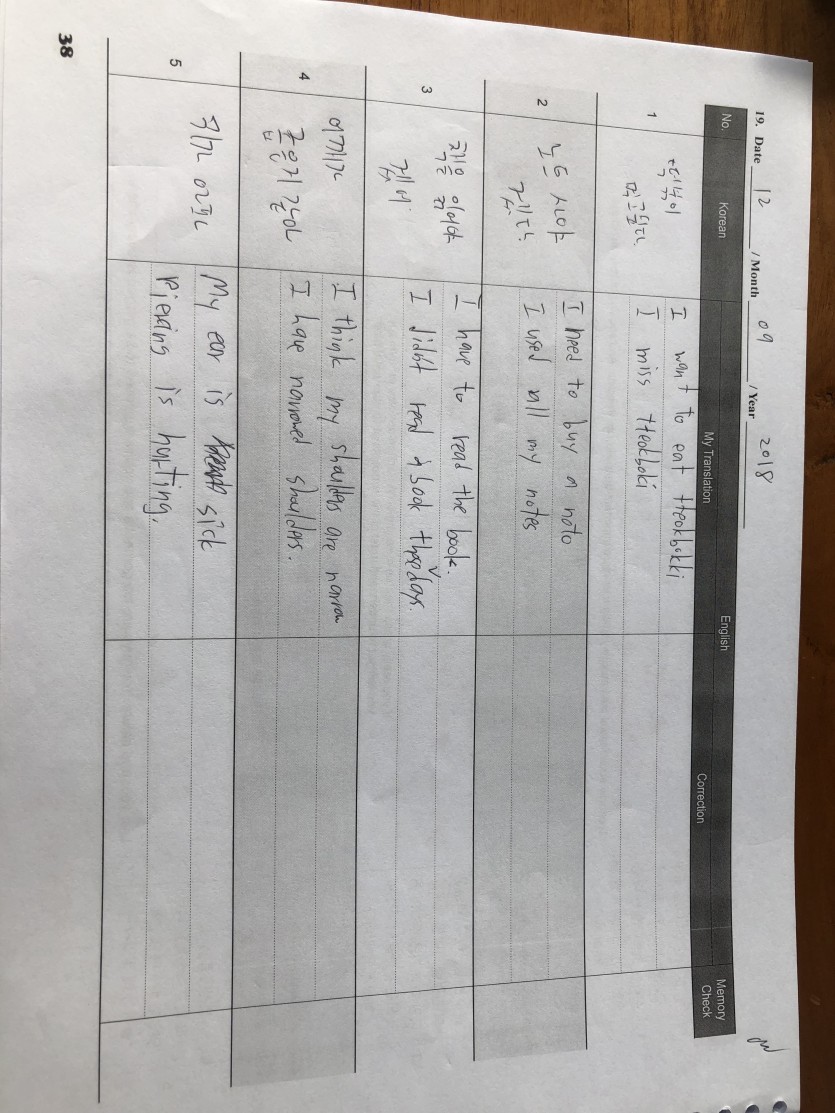 19. Date 12 / Month 09 / Year 2018
No.
Korean
English
My Translation
Correction
Memory Check
1
떡볶이
먹고싶다.
I want to eat tteokbokki
I miss tteokboki
2
노트 사야
겠다.
I need to buy a noto
I used all my notes
3
책을 읽어야
겠어.
I have to read the book.
I didn't read a book these days.
4
어깨가
좁은거 같아
I think my shoulders are narrow
I have narrowed shoulders.
5
귀가 아파
My ear is sick
Piercing is hurting.
38